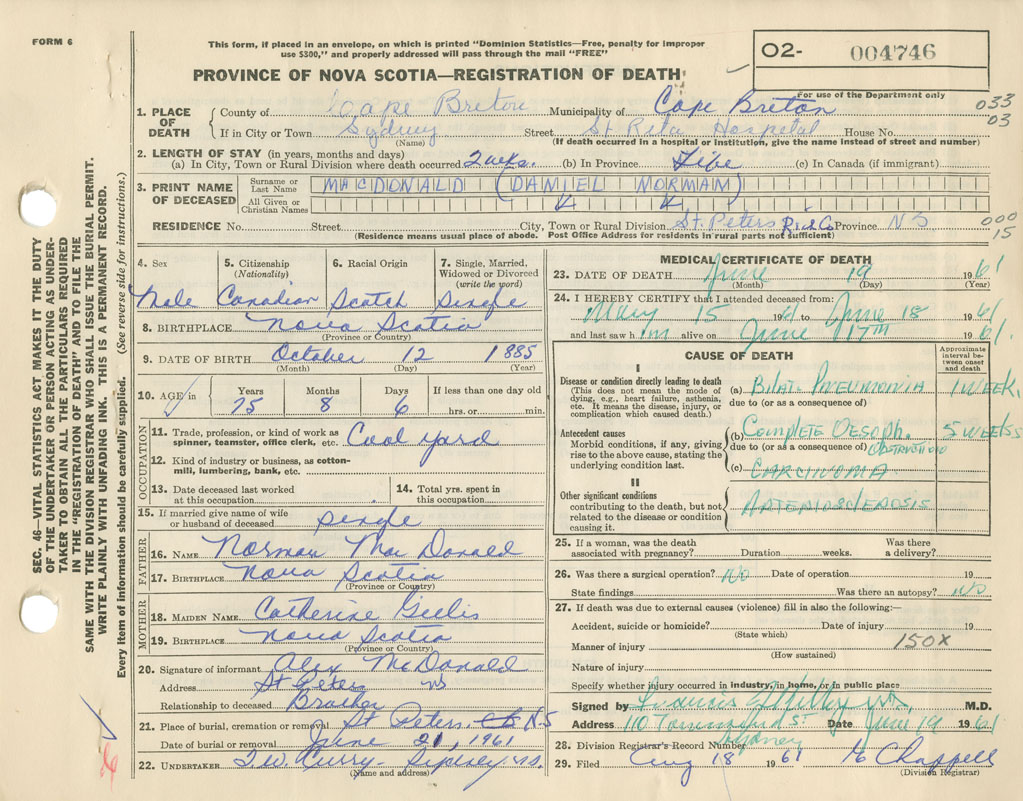 FORM 6
This form, if placed in an envelope, on which is printed "Dominion Statistics—Free, penalty for improper
use $300," and properly addressed will pass through the mail "FREE"
PROVINCE OF NOVA SCOTIA—REGISTRATION OF DEATH
O2- 004746
For use of the Department only
033
03
1. PLACE OF DEATH County of Cape Breton Municipality of Cape Breton
If in City or Town Sydney Street St Rita Hospital House No.
(Name) (If death occurred in a hospital or institution, give the name instead of street and number)
2. LENGTH OF STAY (in years, months and days)
(a) In City, Town or Rural Division where death occurred 2 wks. (b) In Province Life (c) In Canada (if immigrant)
3. PRINT NAME OF DECEASED Surname or Last Name MACDONALD (DANIEL NORMAN)
All Given or Christian Names
RESIDENCE No. Street City, Town or Rural Division St. Peters Rich Co Province NS
(Residence means usual place of abode. Post Office Address for residents in rural parts not sufficient)
000
15
4. Sex 5. Citizenship (Nationality) 6. Racial Origin 7. Single, Married, Widowed or Divorced (write the word)
Male Canadian Scotch single
8. BIRTHPLACE Nova Scotia
(Province or Country)
9. DATE OF BIRTH October 12 1885
(Month) (Day) (Year)
10. AGE in Years Months Days If less than one day old
75 8 6 hrs. or min.
OCCUPATION
11. Trade, profession, or kind of work as spinner, teamster, office clerk, etc. Coal yard
12. Kind of industry or business, as cotton-mill, lumbering, bank, etc.
13. Date deceased last worked at this occupation 14. Total yrs. spent in this occupation
15. If married give name of wife or husband of deceased single
FATHER
16. NAME Norman MacDonald
17. BIRTHPLACE Nova Scotia
(Province or Country)
MOTHER
18. MAIDEN NAME Catherine Gillis
19. BIRTHPLACE Nova Scotia
(Province or Country)
20. Signature of informant Alex McDonald
Address St Peters NS
Relationship to deceased Brother
21. Place of burial, cremation or removal St Peters N.S
Date of burial or removal June 21, 1961
22. UNDERTAKER T.W. Curry - Sydney N.S.
(Name and address)
MEDICAL CERTIFICATE OF DEATH
23. DATE OF DEATH June 19 1961
(Month) (Day) (Year)
24. I HEREBY CERTIFY that I attended deceased from:
May 15 1961 to June 18 1961
and last saw him alive on June 17TH 1961.
CAUSE OF DEATH
Approximate interval between onset and death
I
Disease or condition directly leading to death (a) BILAT. PNEUMONIA 1 WEEK.
(This does not mean the mode of dying, e.g., heart failure, asthenia, etc. It means the disease, injury, or complication which caused death.) due to (or as a consequence of)
Antecedent causes (b) COMPLETE OESOPH. OBSTRUCTION 5 WEEKS
Morbid conditions, if any, giving rise to the above cause, stating the underlying condition last. due to (or as a consequence of)
(c) CARCINOMA
II
Other significant conditions contributing to the death, but not related to the disease or condition causing it. ARTERIOSCLEROSIS
25. If a woman, was the death associated with pregnancy? Duration weeks. Was there a delivery?
26. Was there a surgical operation? NO Date of operation 19
State findings Was there an autopsy? NO
27. If death was due to external causes (violence) fill in also the following:—
Accident, suicide or homicide? Date of injury 19
(State which)
Manner of injury 150X
(How sustained)
Nature of injury
Specify whether injury occurred in industry, in home, or in public place
Signed by M.D.
Address 110 Townsend St Date June 19 1961
Sydney
28. Division Registrar's Record Number
29. Filed Aug 18 1961 Chappell
(Division Registrar)
SEC. 46—VITAL STATISTICS ACT MAKES IT THE DUTY
OF THE UNDERTAKER OR PERSON ACTING AS UNDER-
TAKER TO OBTAIN ALL THE PARTICULARS REQUIRED
IN THE "REGISTRATION OF DEATH" AND TO FILE THE
SAME WITH THE DIVISION REGISTRAR WHO SHALL ISSUE THE BURIAL PERMIT.
WRITE PLAINLY WITH UNFADING INK. THIS IS A PERMANENT RECORD.
Every item of information should be carefully supplied. (See reverse side for instructions.)